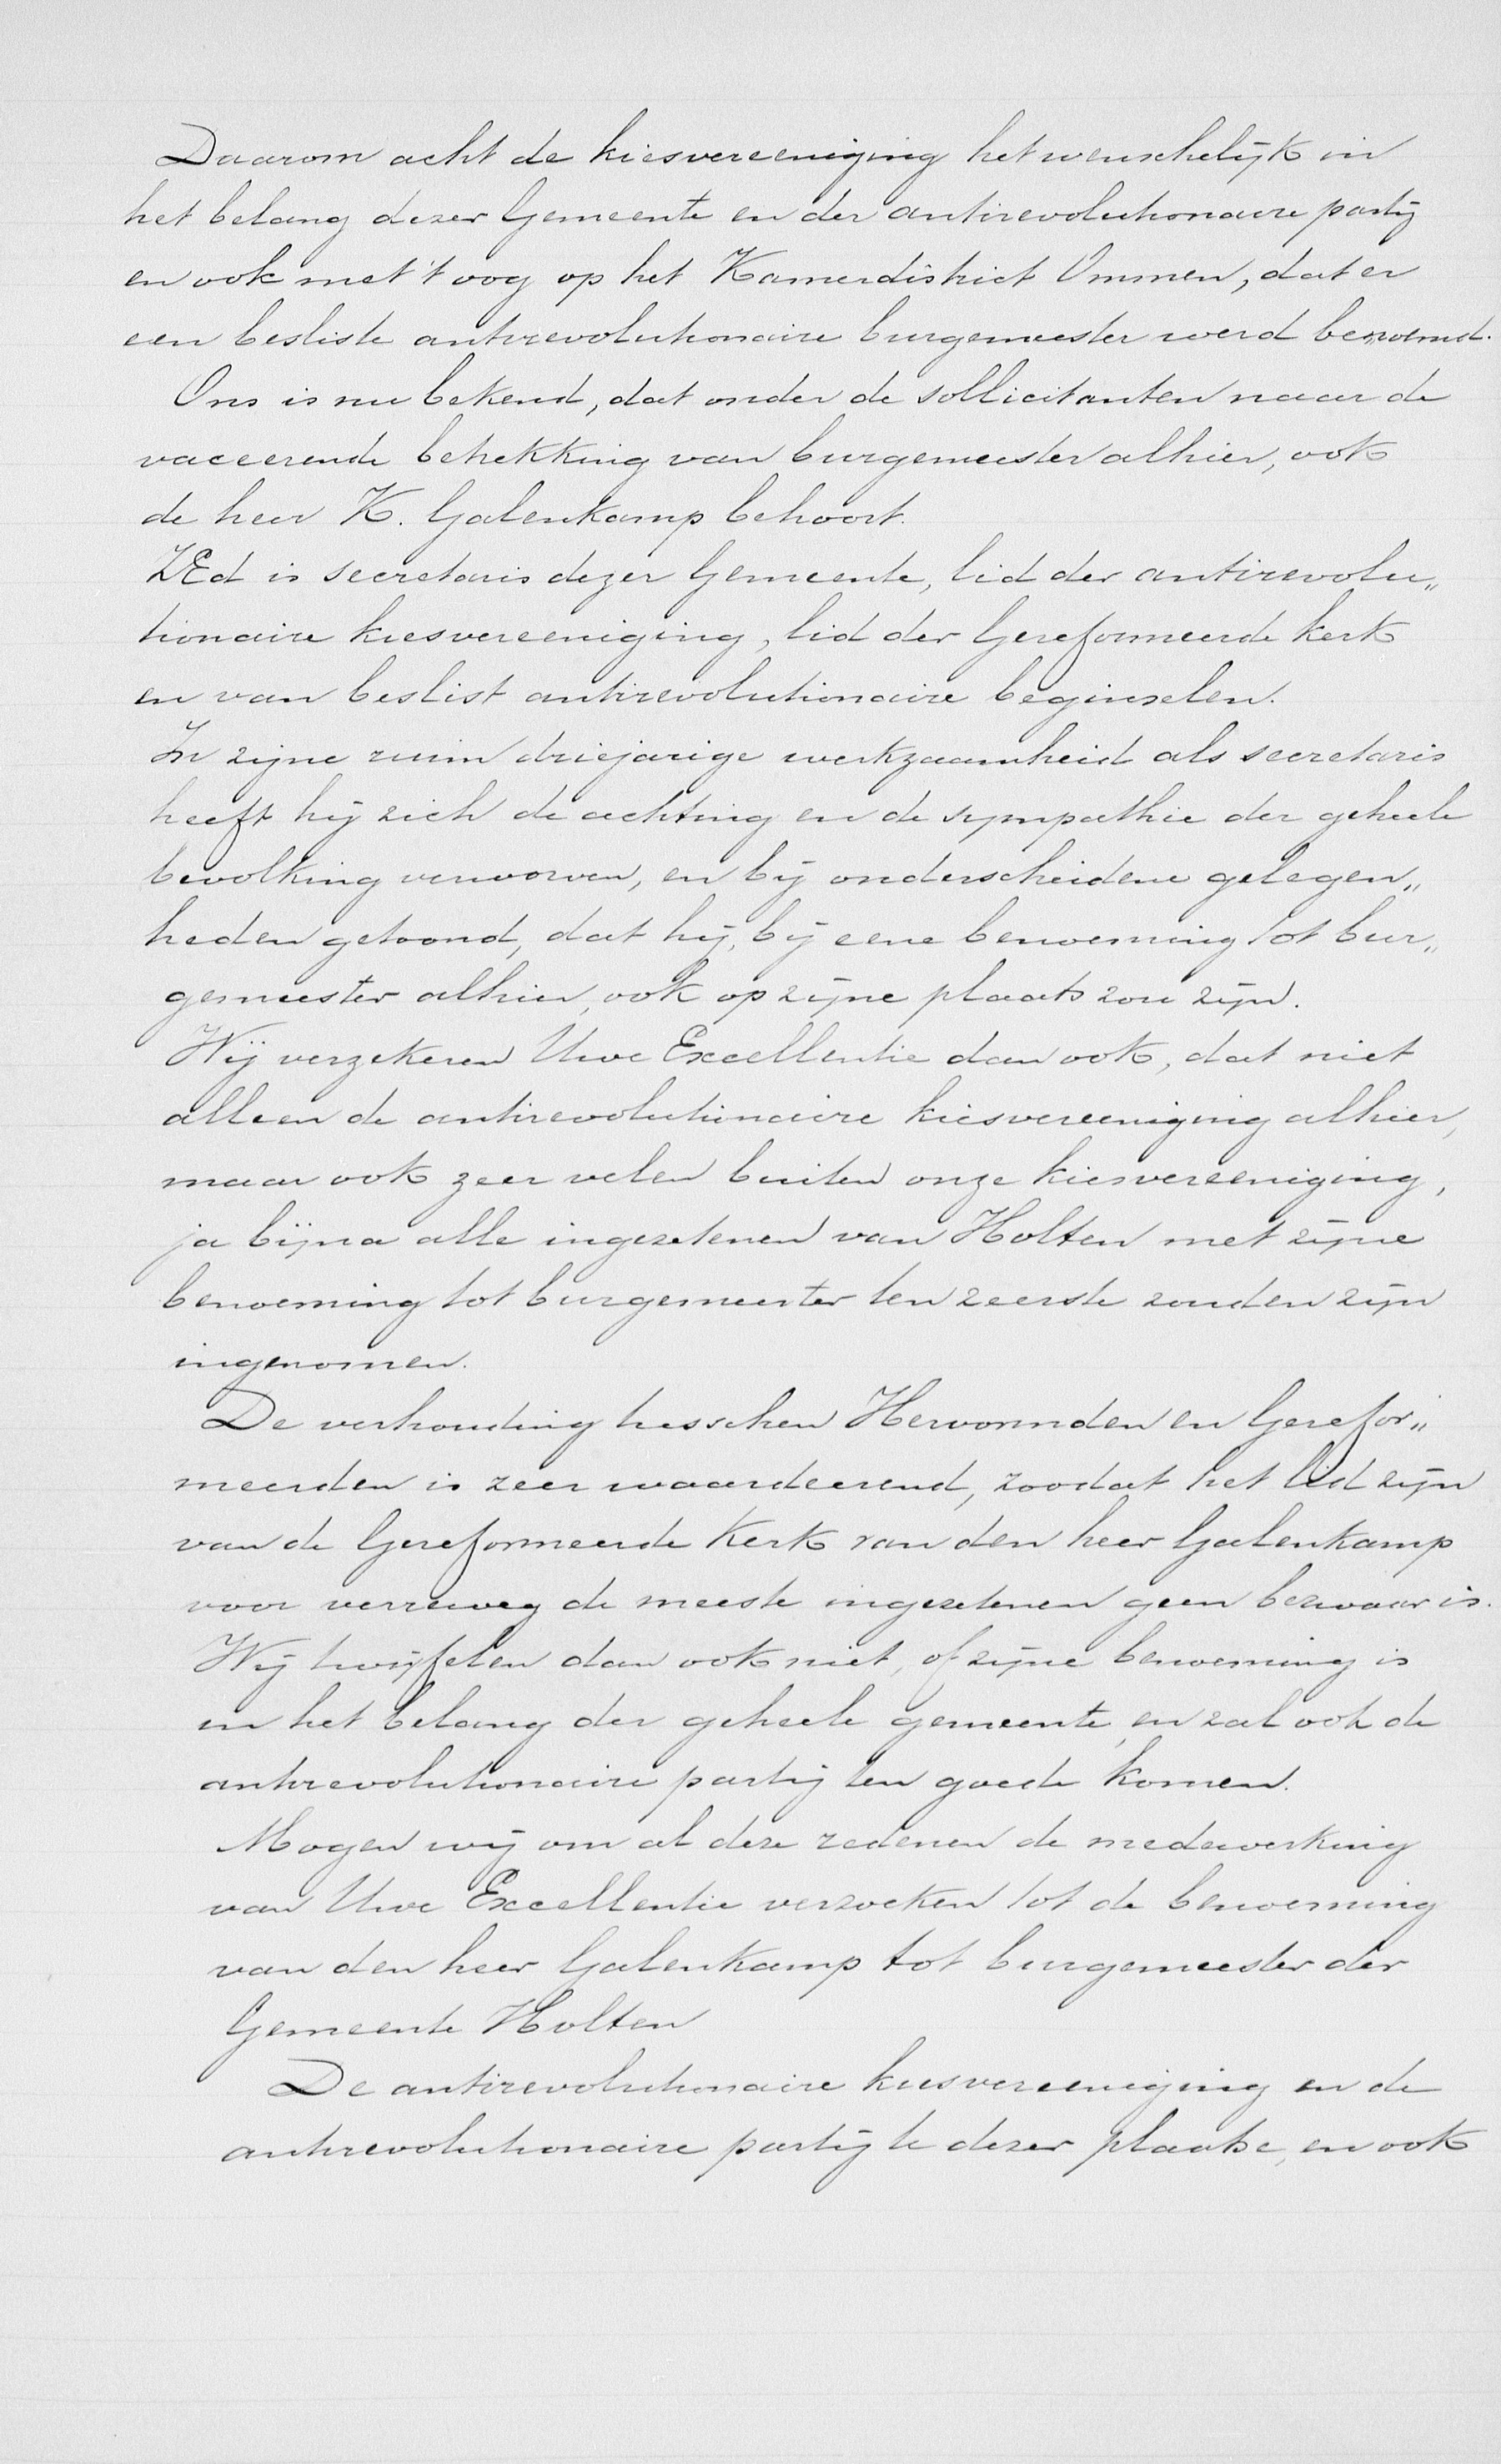 Daarom acht de kiesvereeniging het wenschelijk in
het belang dezer Gemeente en der antirevolutionaire partij
en ook met 't oog op het Kamerdistrict Ommen, dat er
een besliste antirevolutionaire burgemeester werd benoemd.
Ons is nu bekend, dat onder de sollicitanten naar de
vaceerende betrekking van burgemeester alhier, ook
de heer K. Galenkamp behoort.
ZEd is secretaris dezer Gemeente, lid der antirevolu„
tionaire kiesvereeniging, lid der Gereformeerde kerk
en van beslist antirevolutionaire beginselen.
In zijne ruim driejarige werkzaamheid als secretaris
heeft hij zich de achting en de sympathie der geheele
bevolking verworven, en bij onderscheidene gelegen„
heden getoond, dat hij, bij eene benoeming tot bur„
gemeester alhier, ook op zijne plaats zou zijn.
Wij verzekeren Uwe Excellentie dan ook, dat niet
alleen de antirevolutinaire kiesvereeniging alhier,
maar ook zeer velen buiten onze kiesvereeniging,
ja bijna alle ingezetenen van Holten met zijne
benoeming tot burgemeester ten zeerste zouden zijn
ingenomen.
De verhouding tusschen Hervormden en Gerefor„
meerden is zeer waardeerend, zoodat het lid zijn
van de Gereformeerde Kerk van den heer Galenkamp
voor verreweg de meeste ingezetenen geen bezwaar is.
Wij twijfelen dan ook niet, of zijne benoeming is
in het belang der geheele gemeente, en zal ook de
antirevolutionaire partij ten goede komen.
Mogen wij om al deze redenen de medewerking
van Uwe Excellentie verzoeken tot de benoeming
van den heer Galenkamp tot burgemeester der
Gemeente Holten
De antirevolutionaire kiesvereeniging en de
antirevolutionaire partij te dezer plaatse, en ook